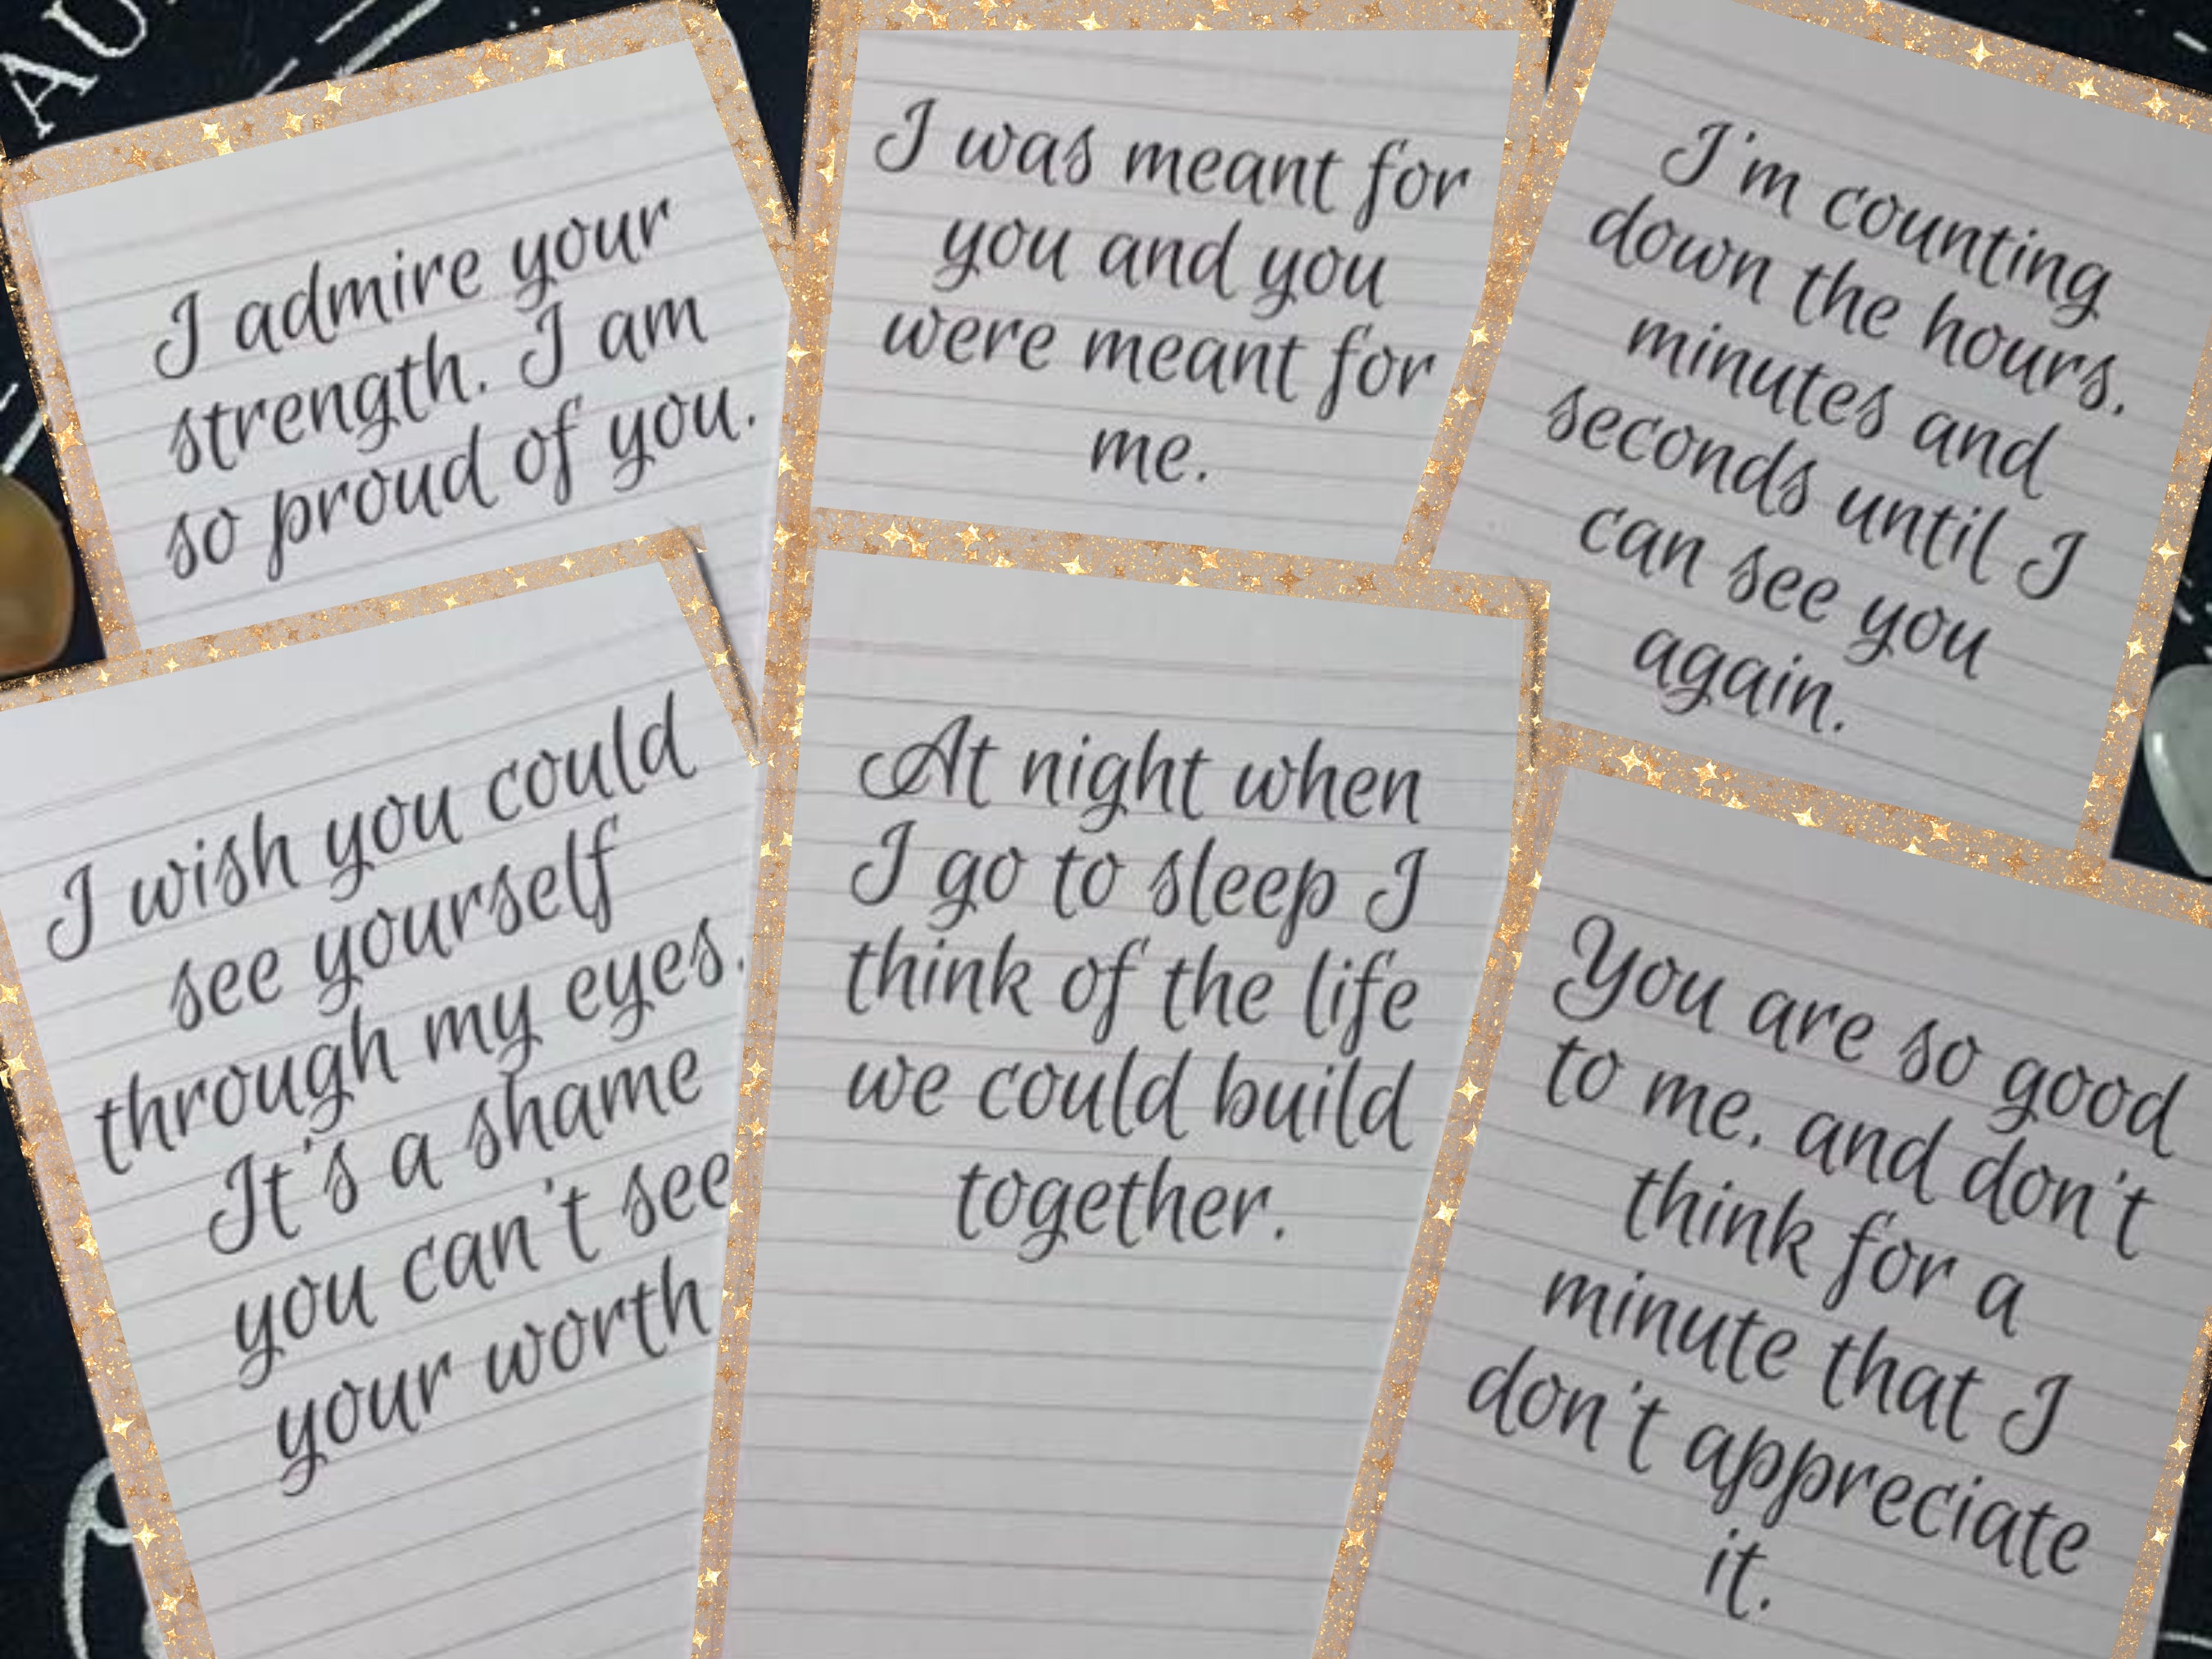 AU
I admire your
strength. I am
so proud of you.
I was meant for
you and you
were meant for
me.
I'm counting
down the hours,
minutes and
seconds until I
can see you
again.
I wish you could
see yourself
through my eyes.
It's a shame
you can't see
your worth
At night when
I go to sleep I
think of the life
we could build
together.
You are so good
to me, and don't
think for a
minute that I
don't appreciate
it.